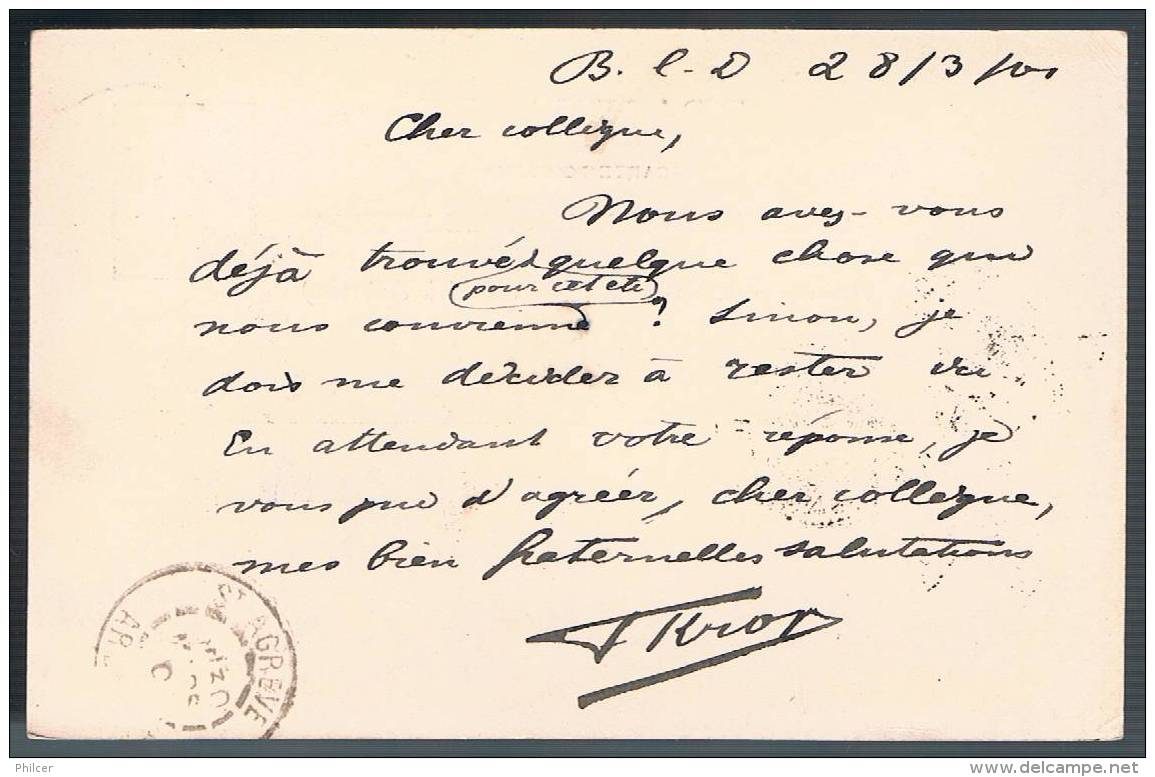 B. C-D 28/3/01
Cher collègue,
Nous avez-vous
déjà trouvé quelque chose qui
pour cet été
nous convienne ? Sinon, je
dois me décider à rester ici
En attendant votre réponse, je
vous prie d'agréer, cher collègue,
mes bien fraternelles salutations
ST AGRÈVE
Philcer
www.delcampe.net